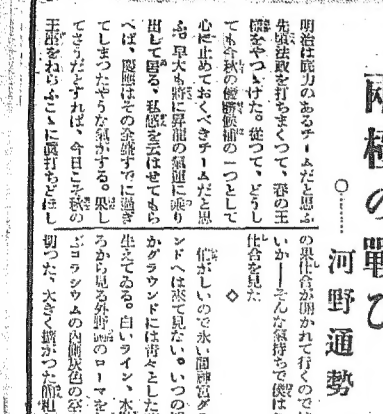 兩極の戰ひ
河野通勢
明治は底力のあるチームだと思ふ
先頃法政を打ちまくつて、春の王
をやつゝけた。從つて、どうし
ても今秋の優勝候補の一つとして
心に止めておくべきチームだと思
ふ。早大も將に昇龍の氣運に乘り
出して居る、私感を云はせてもら
へば、慶應はその全盛すでに過ぎ
てしまつたやうな氣がする。果し
てさうだとすれば、今日こそ秋の
王座をねらふこゝに眞打ちどほし
の果仕合が開かれて行くのでは
いか——そんな氣持ちで僕は
仕合を見た
◇
忙がしいので永い間神宮グ
ンドへは來て見ない。いつの
かグラウンドには靑々とした
生えてゐる。白いライン、水
ろから見る外野のローマを
ぶコロシアムの内側灰色の
切つた、大きく擴がつた